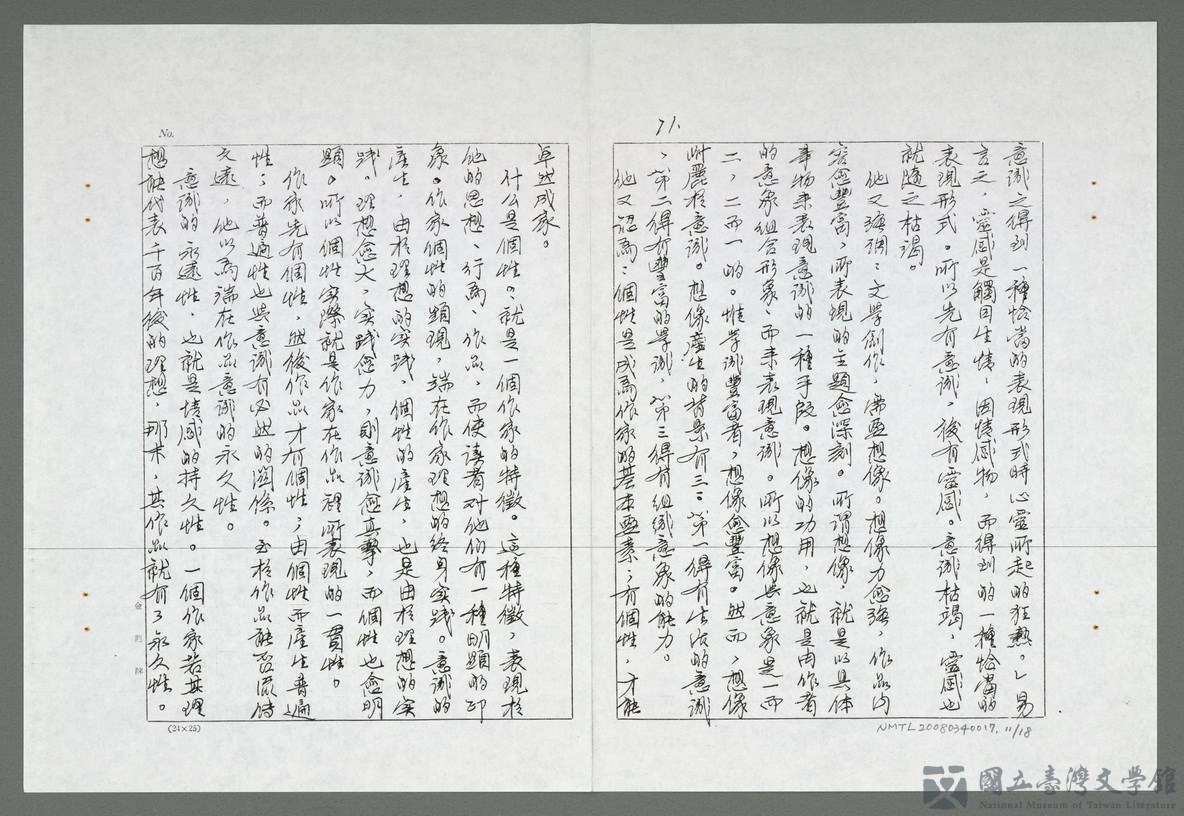 71.
意識之得到一種恰當的表現形式時心靈所起的狂熱。」易
言之,靈感是觸目生情,因情感物,而得到的一種恰當的
表現形式。所以先有意識,後有靈感。意識枯竭,靈感也
就隨之枯竭。
他又強調:文學創作,需要想像。想像力愈強,作品內
容愈豐富,所表現的主題愈深刻。所謂想像,就是以具體
事物來表現意識的一種手段。想像的功用,也就是由作者
的意象組合形象,而來表現意識。所以想像與意象是一而
二,二而一的。惟學識豐富者,想像愈豐富。然而,想像
附麗於意識。想像產生的背景有三:第一得有生活的意識
、第二得有豐富的學識,第三得有組織意象的能力。
他又認為:個性是成為作家的基本要素;有個性,才能
NMTL20080340017, 11/18
No.
卓然成家。
什么是個性?就是一個作家的特徵。這種特徵,表現於
他的思想、行為、作品,而使讀者对他們有一種明顯的印
象。作家個性的顯現,端在作家理想的終身实践。意識的
產生,由於理想的实践,個性的產生,也是由於理想的实
践。理想愈大,实践愈力,則意識愈真摯,而個性也愈明
顯。所以個性实際就是作家在作品裡所表現的一貫性。
作家先有個性,然後作品才有個性;由個性而產生普遍
性;而普遍性也與意識有必然的關係。至於作品能否流傳
久遠,他以為端在作品意識的永久性。
意識的永遠性,也就是情感的持久性。一個作家若其理
想能代表千百年後的理想,那末,其作品就有了永久性。
(24×25)
國立臺灣文學館
National Museum of Taiwan Literature